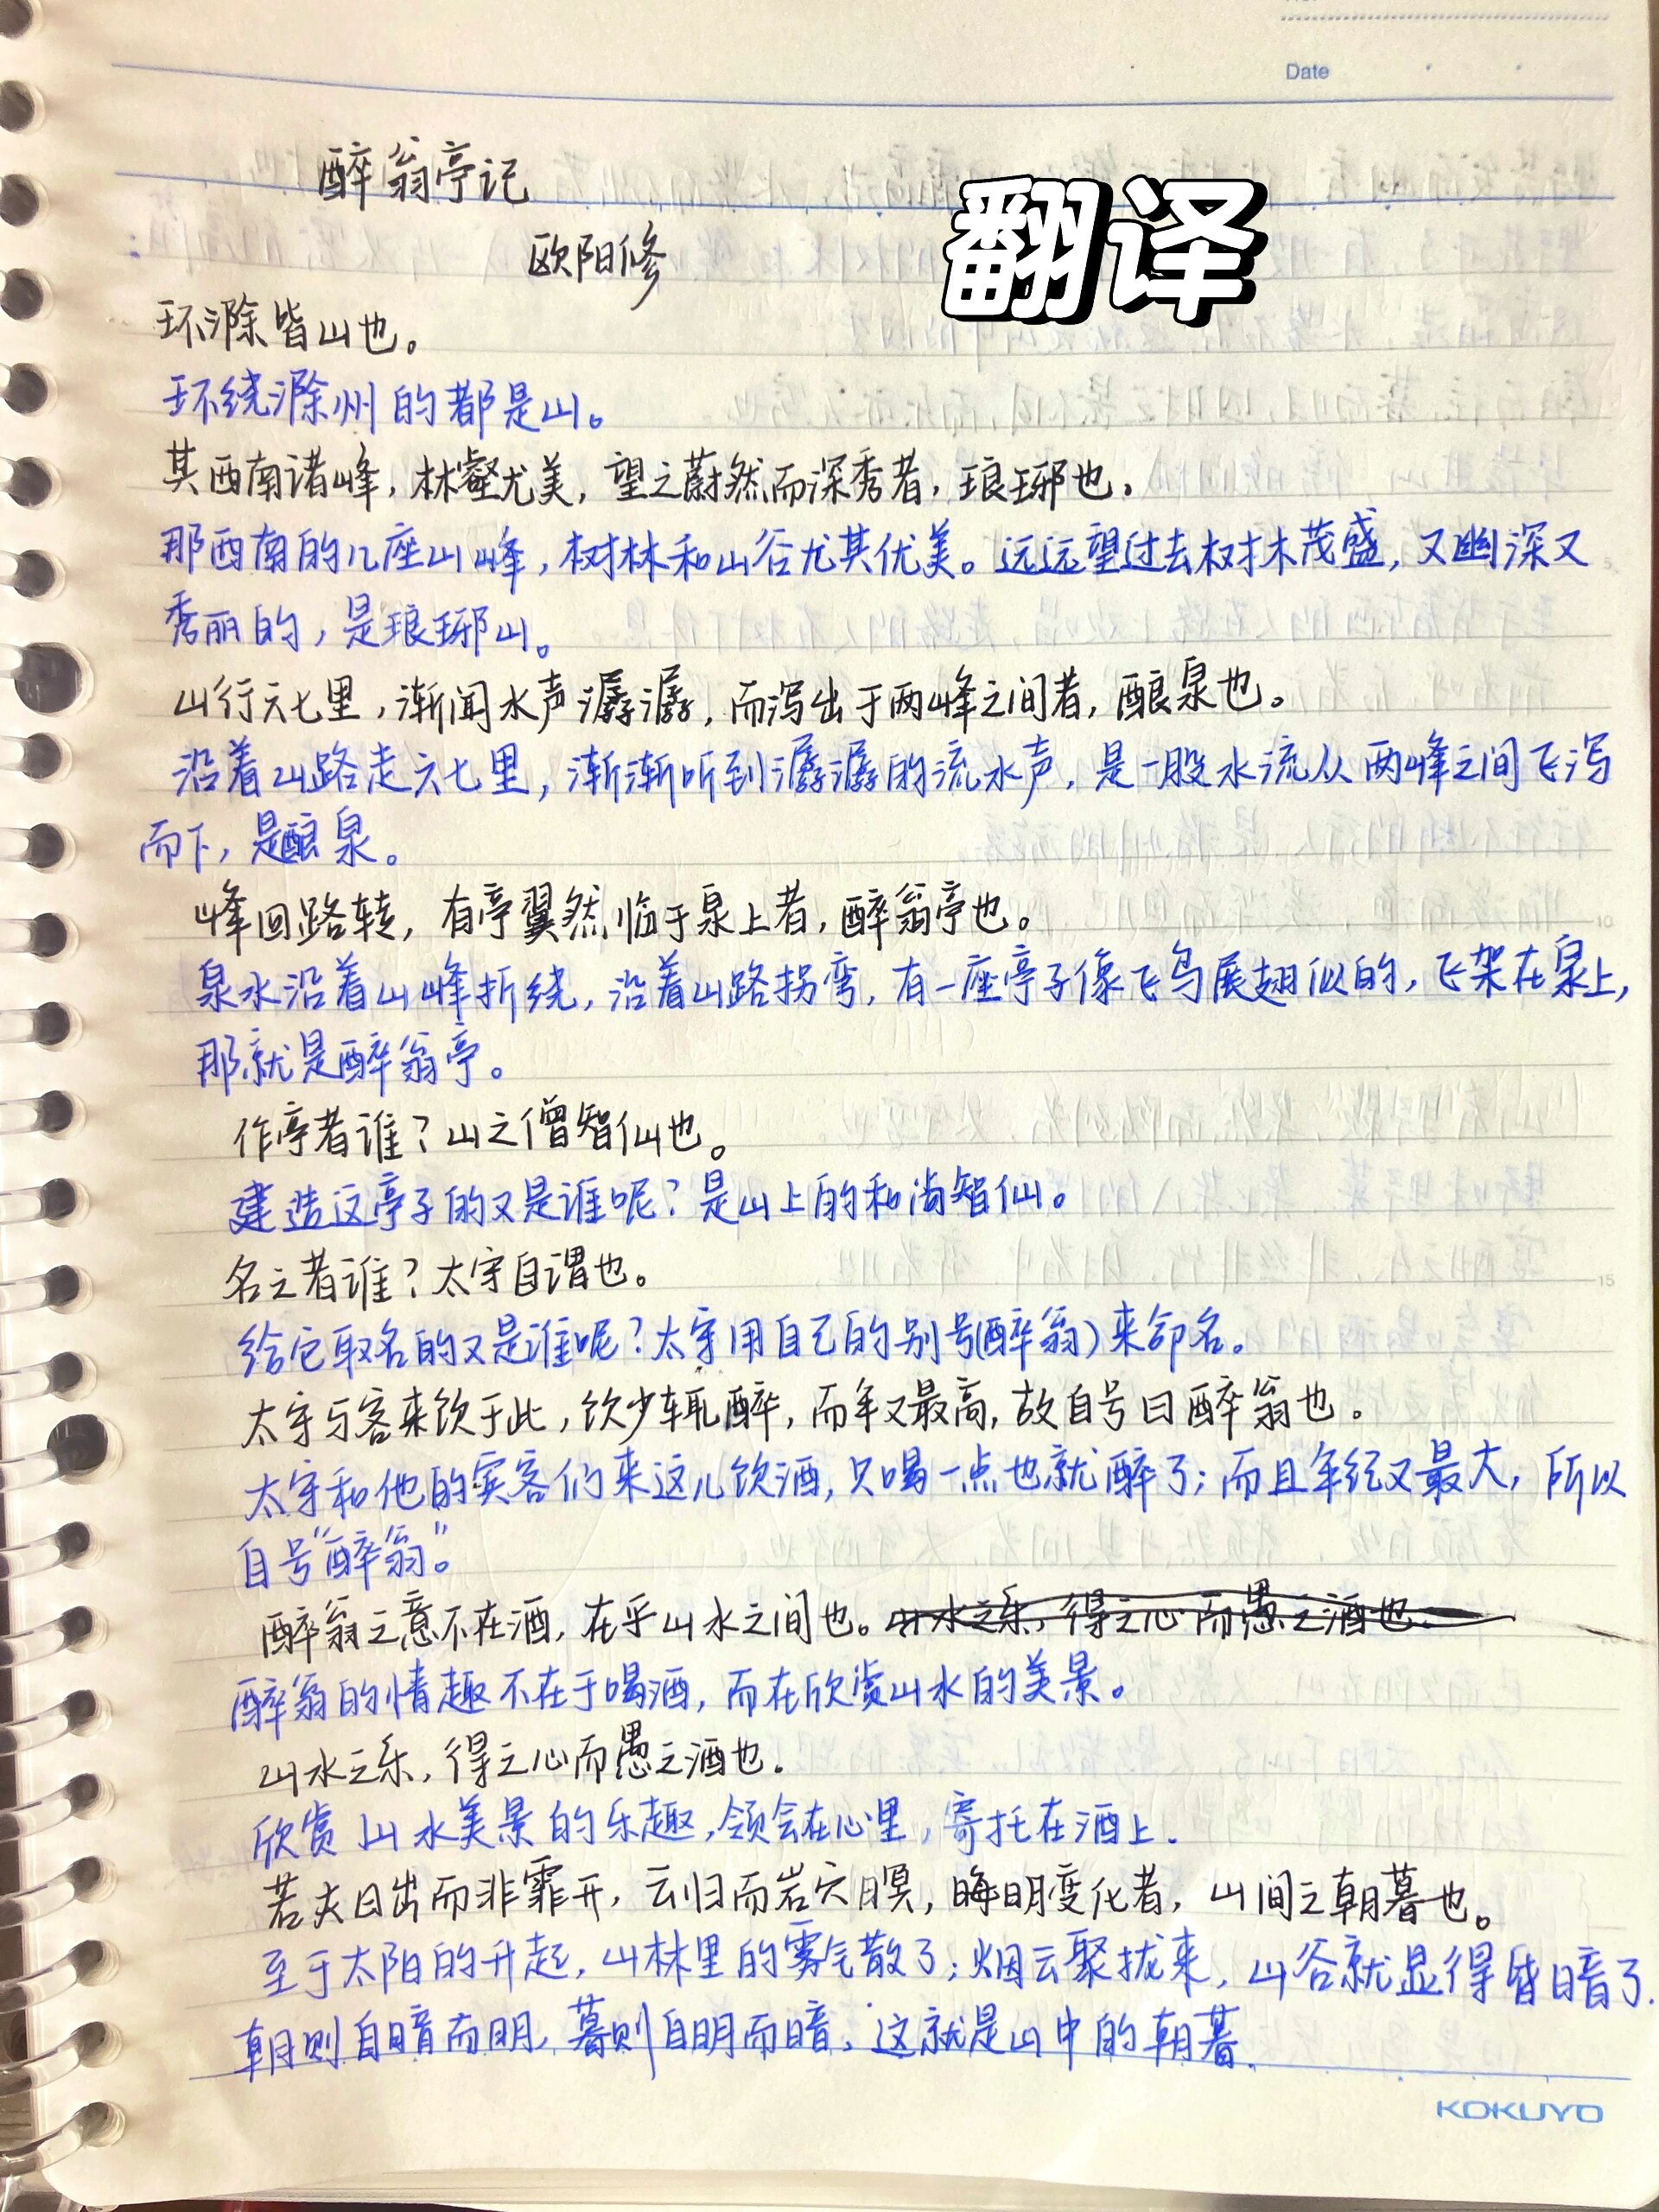 Date
醉翁亭记
翻译
欧阳修
环滁皆山也。
环绕滁州的都是山。
其西南诸峰，林壑尤美，望之蔚然而深秀者，琅琊也。
那西南的几座山峰，树林和山谷尤其优美。远远望过去树木茂盛，又幽深又
秀丽的，是琅琊山。
山行六七里，渐闻水声潺潺，而泻出于两峰之间者，酿泉也。
沿着山路走六七里，渐渐听到潺潺的流水声，是一股水流从两峰之间飞泻
而下，是酿泉。
峰回路转，有亭翼然临于泉上者，醉翁亭也。
泉水沿着山峰折绕，沿着山路拐弯，有一座亭子像飞鸟展翅似的，飞架在泉上，
那就是醉翁亭。
作亭者谁？山之僧智仙也。
建造这亭子的又是谁呢？是山上的和尚智仙。
名之者谁？太守自谓也。
给它取名的又是谁呢？太守用自己的别号(醉翁）来命名。
太守与客来饮于此，饮少辄醉，而年又最高，故自号曰醉翁也。
太守和他的宾客们来这儿饮酒，只喝一点也就醉了；而且年纪又最大，所以
自号“醉翁”。
醉翁之意不在酒，在乎山水之间也。山水之乐，得之心而愚之酒也。
醉翁的情趣不在于喝酒，而在欣赏山水的美景。
山水之乐，得之心而愚之酒也.
欣赏山水美景的乐趣，领会在心里，寄托在酒上.
若夫日出而非霏开，云归而岩穴暝，晦明变化者，山间之朝暮也。
至于太阳的升起，山林里的雾气散了；烟云聚拢来，山谷就显得昏暗了.
朝则自暗而明，暮则自明而暗，这就是山中的朝暮.
KOKUYO